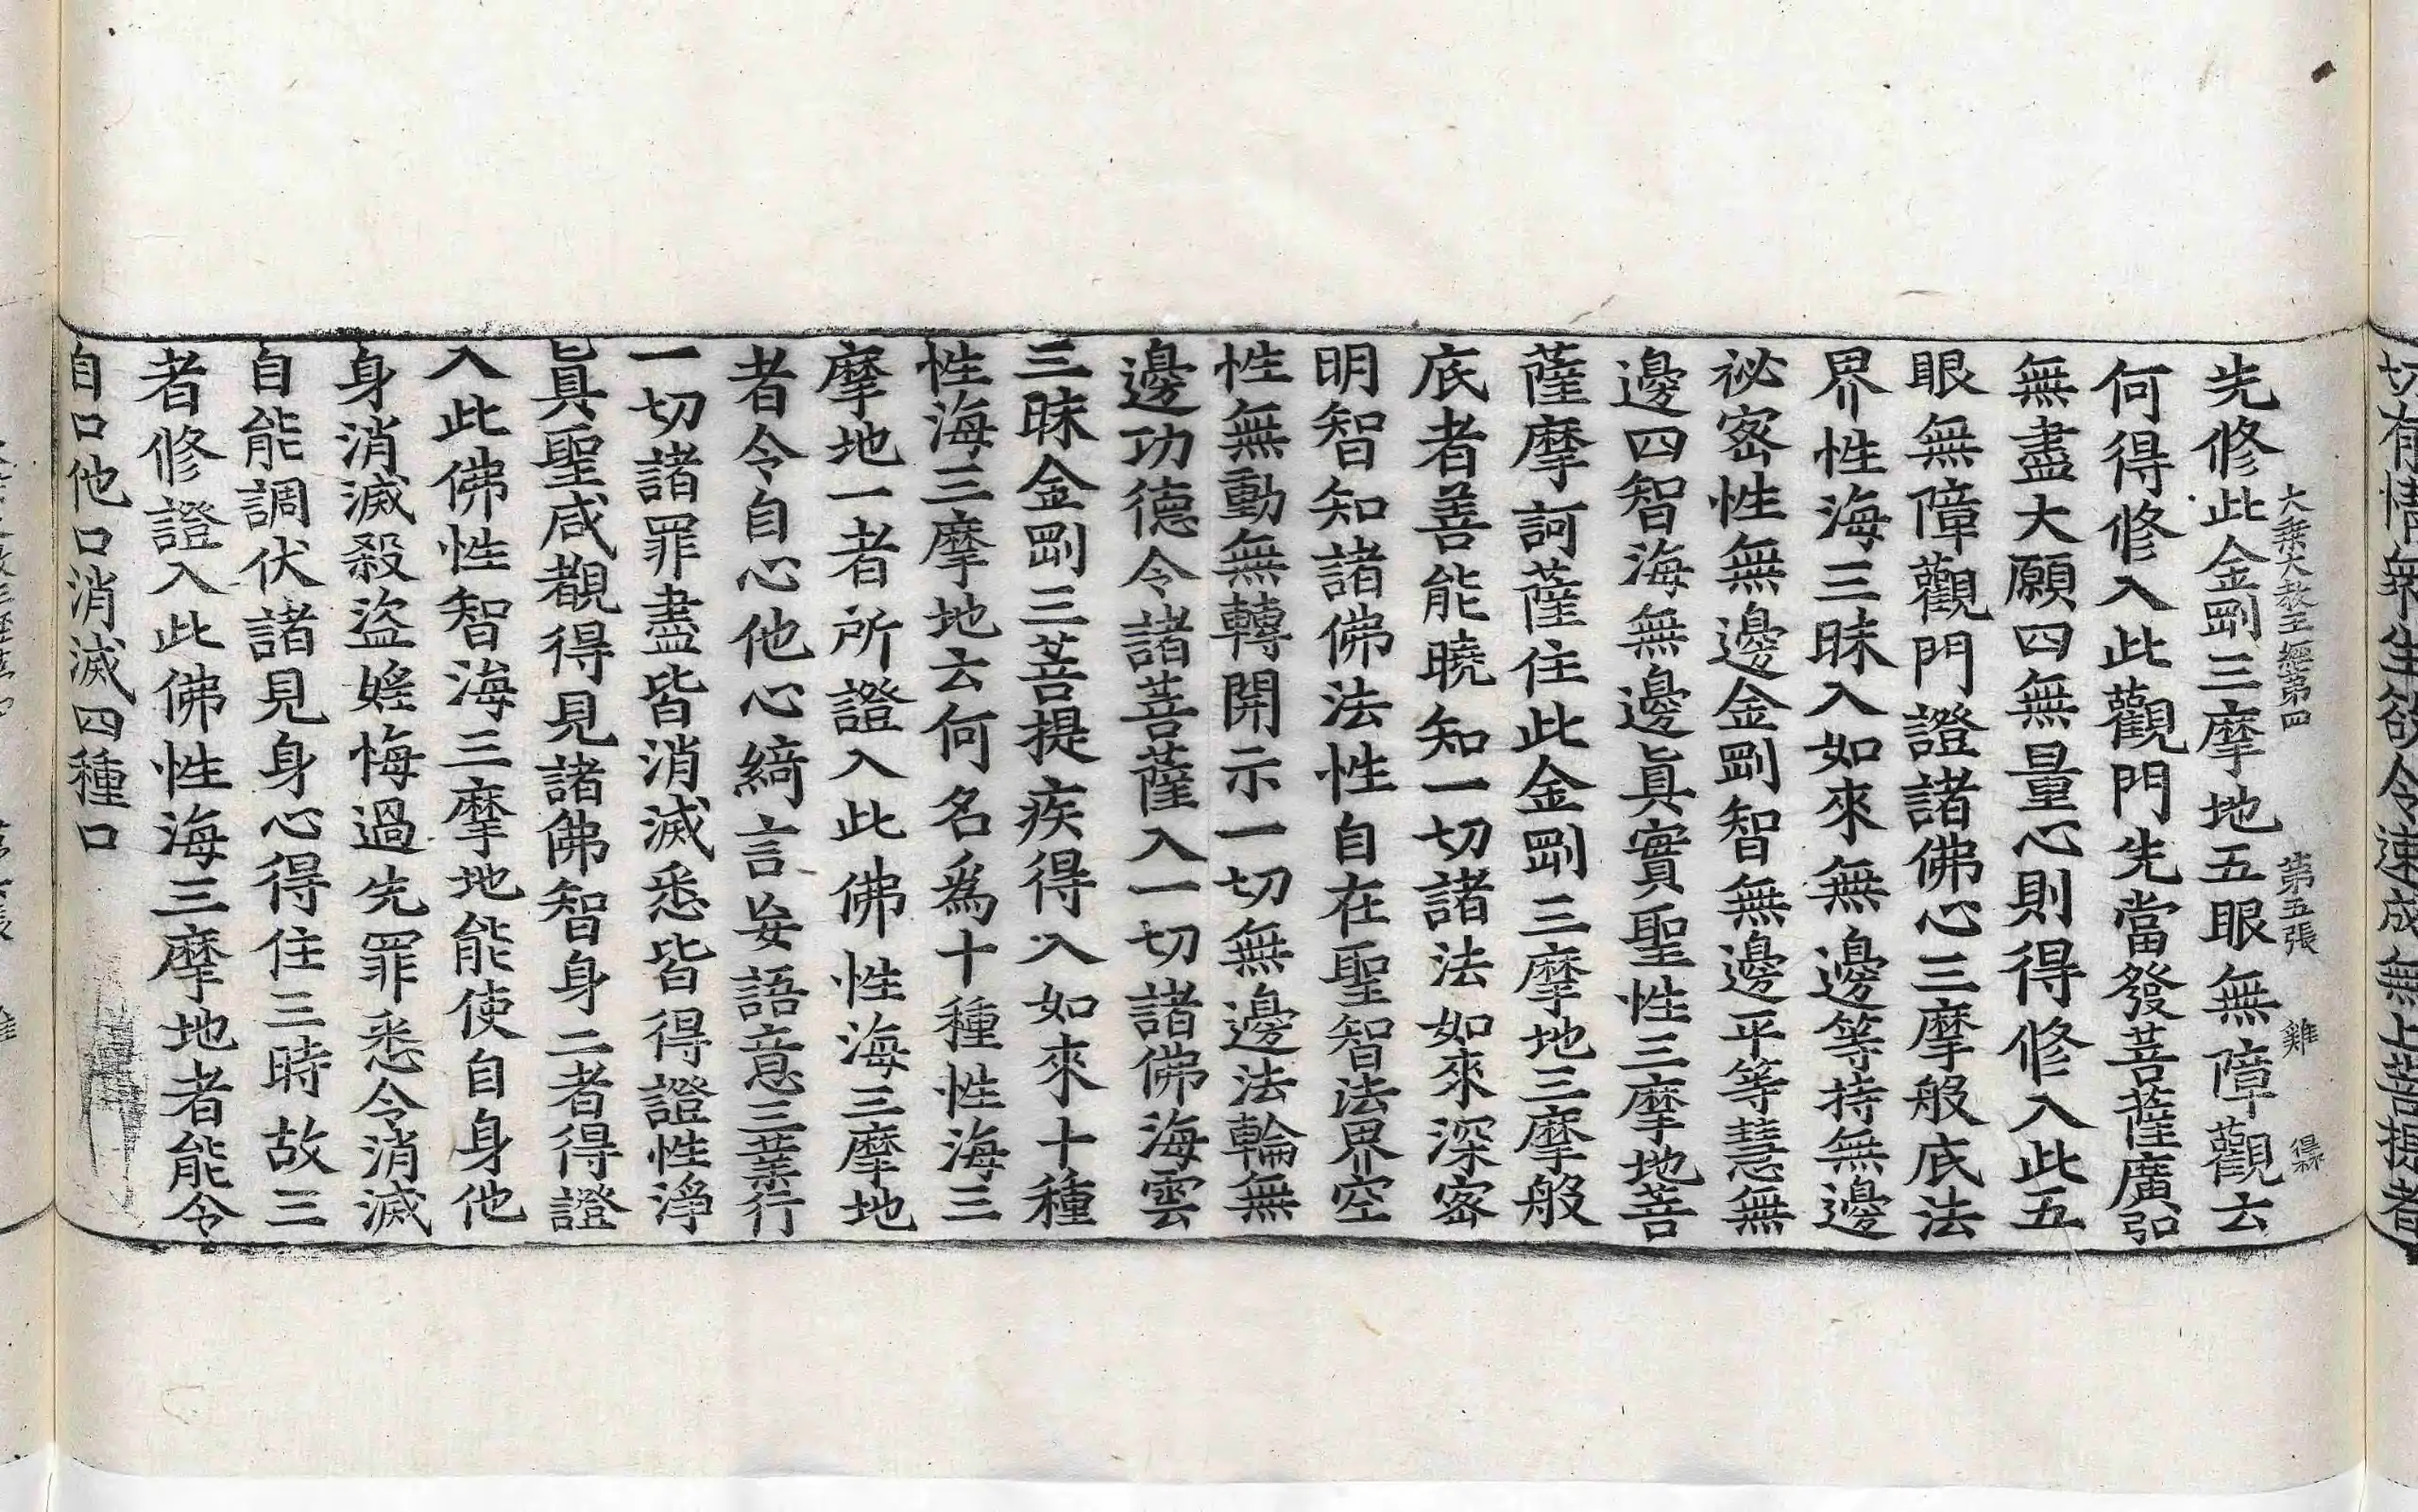 切有情衆生欲令速成無上菩提者
大乘大教王經第四 第五張 雞 得林
先修此金剛三摩地五眼無障觀云
何得修入此觀門先當發菩薩廣弘
無盡大願四無量心則得修入此五
眼無障觀門證諸佛心三摩般底法
界性海三昧入如來無邊等持無邊
祕密性無邊金剛智無邊平等慧無
邊四智海無邊眞實聖性三摩地菩
薩摩訶薩住此金剛三摩地三摩般
底者善能曉知一切諸法如來深密
明智知諸佛法性自在聖智法界空
性無動無轉開示一切無邊法輪無
邊功德令諸菩薩入一切諸佛海雲
三昧金剛三菩提疾得入如來十種
性海三摩地云何名爲十種性海三
摩地一者所證入此佛性海三摩地
者令自心他心綺言妄語意三業行
一切諸罪盡皆消滅悉皆得證性淨
眞聖咸覩得見諸佛智身二者得證
入此佛性智海三摩地能使自身他
身消滅殺盜婬悔過先罪悉令消滅
自能調伏諸見身心得住三時故三
者修證入此佛性海三摩地者能令
自口他口消滅四種口